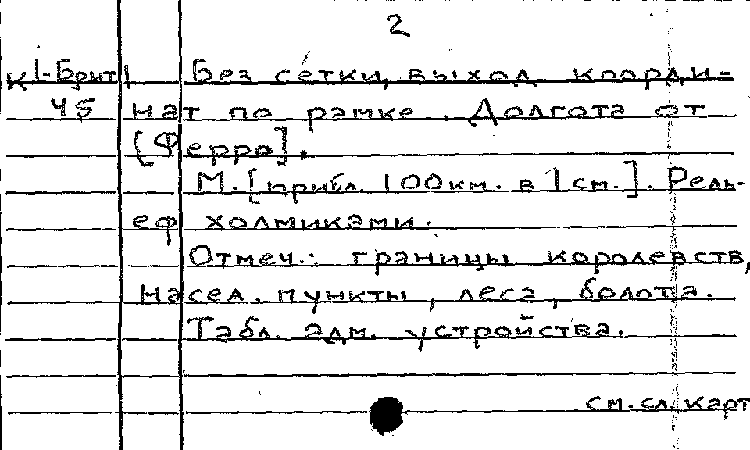 2
К1-Брит Без сетки, выход коорди-
45 нат по рамке. Долгота от
[Ферро].
М. [прибл. 100км. в 1см.]. Рель-
еф холмиками.
Отмеч.: границы королевств,
насел. пункты, леса, болота.
Табл. адм. устройства.
см. сл. карт